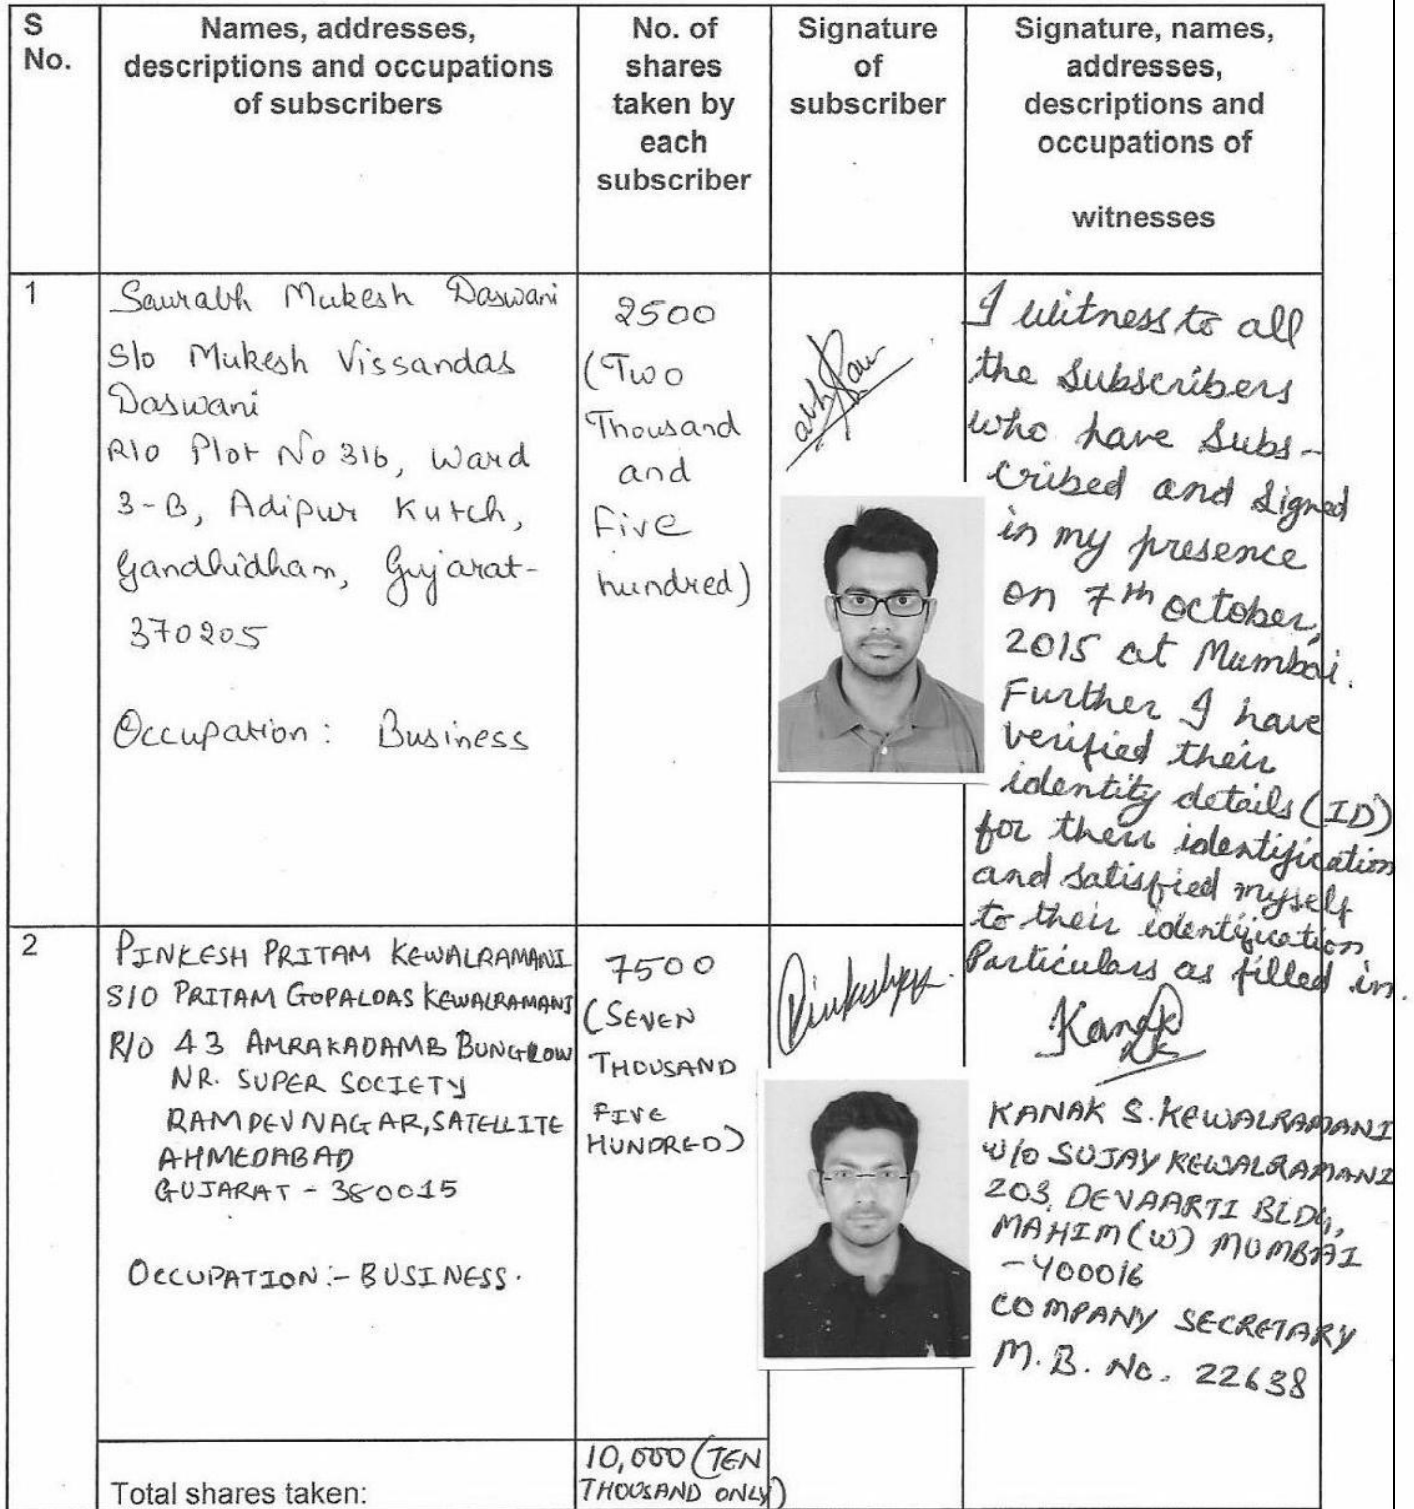 S No.
Names, addresses,
descriptions and occupations
of subscribers
No. of
shares
taken by
each
subscriber
Signature
of
subscriber
Signature, names,
addresses,
descriptions and
occupations of
witnesses
1
Saurabh Mukesh Daswani
S/o Mukesh Vissandas
Daswani
R/o Plot No 316, Ward
3-B, Adipur Kutch,
Gandhidham, Gujarat-
370205
Occupation: Business
2500
(Two
Thousand
and
Five
hundred)
I witness to all
the Subscribers
who have Subs-
cribed and signed
in my presence
on 7th october,
2015 at Mumbai.
Further I have
verified their
identity details (ID)
for their identification
and satisfied myself
to their identification
Particulars as filled in.
Kanak
KANAK S. KEWALRAMANI
W/O SUJAY KEWALRAMANI
203, DEVAARTI BLDG,
MAHIM (W) MUMBAI
-400016
COMPANY SECRETARY
M.B. No. 22638
2
PINKESH PRITAM KEWALRAMANI
S/O PRITAM GOPALDAS KEWALRAMANI
R/O 43 AMRAKADAMB BUNGLOW
NR. SUPER SOCIETY
RAMDEVNAGAR, SATELLITE
AHMEDABAD
GUJARAT - 380015
OCCUPATION:- BUSINESS.
7500
(SEVEN
THOUSAND
FIVE
HUNDRED)
Total shares taken:
10,000 (TEN
THOUSAND ONLY)